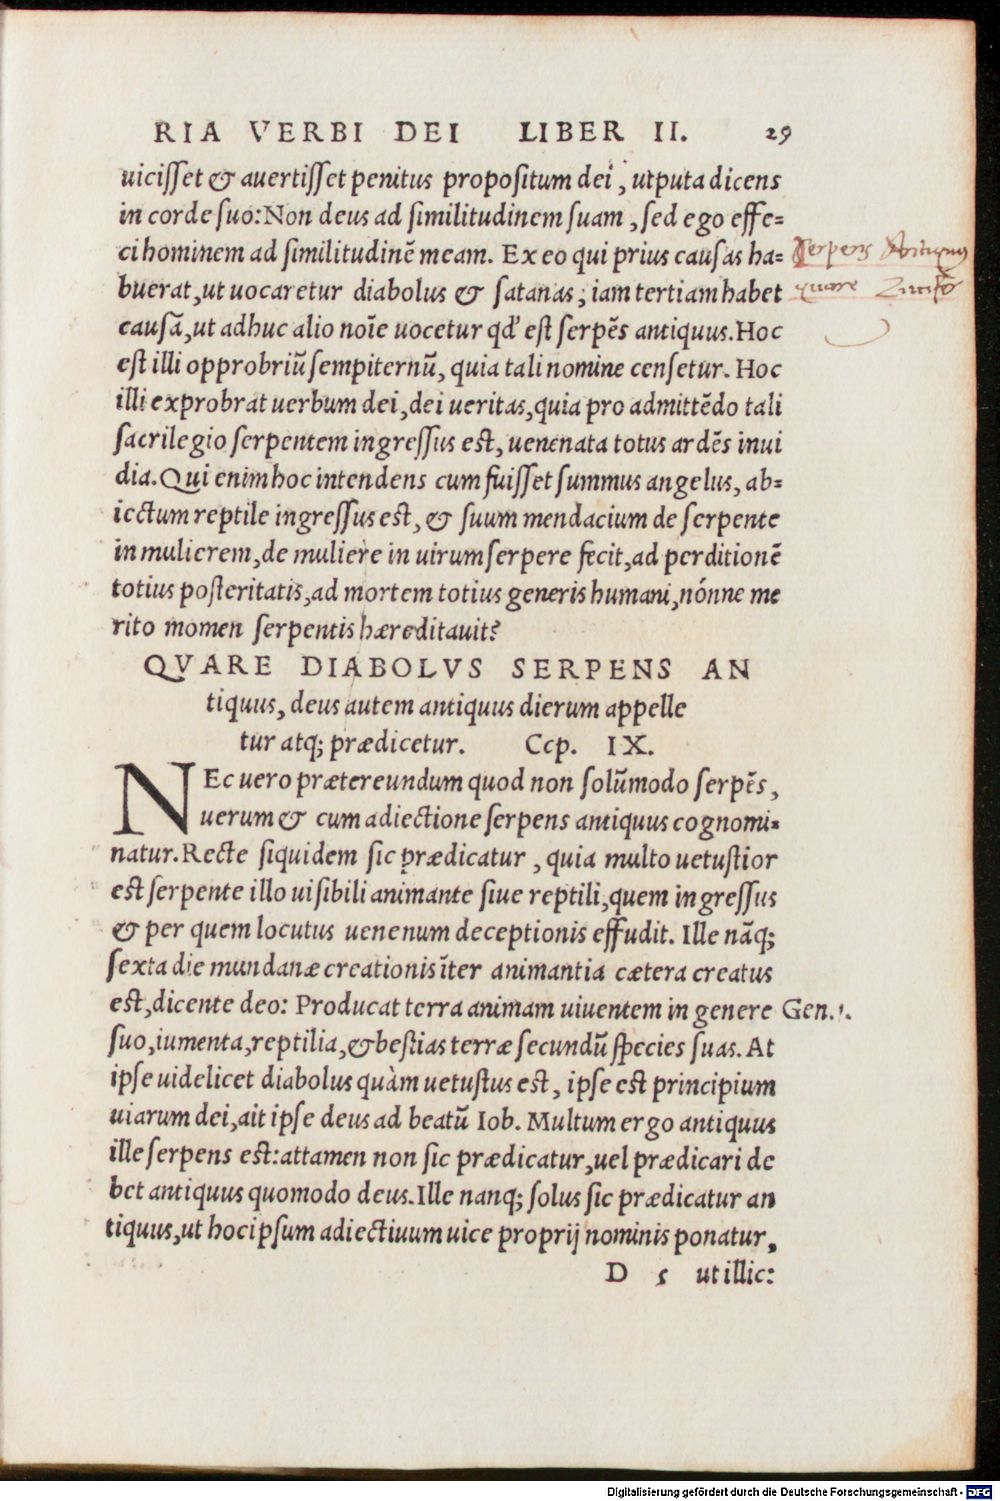 RIA VERBI DEI LIBER II. 29
uicisset & auertisset penitus propositum dei, utputa dicens
in corde suo: Non deus ad similitudinem suam, sed ego effe=
ci hominem ad similitudinē meam. Ex eo qui prius causas ha=
Serpens Antiquus
buerat, ut uocaretur diabolus & satanas, iam tertiam habet
quare
causā, ut adhuc alio noīe uocetur qd' est serpēs antiquus. Hoc
est illi opprobriū sempiternū, quia tali nomine censetur. Hoc
illi exprobrat uerbum dei, dei ueritas, quia pro admittēdo tali
sacrilegio serpentem ingressus est, uenenata totus ardēs inui
dia. Qui enim hoc intendens cum fuisset summus angelus, ab=
iectum reptile ingressus est, & suum mendacium de serpente
in mulierem, de muliere in uirum serpere fecit, ad perditionē
totius posteritatis, ad mortem totius generis humani, nónne me
rito momen serpentis hæreditauit?
QVARE DIABOLVS SERPENS AN
tiquus, deus autem antiquus dierum appelle
tur atq; prædicetur. Cep. IX.
NEc uero prætereundum quod non solūmodo serpēs,
uerum & cum adiectione serpens antiquus cognomi=
natur. Recte siquidem sic prædicatur, quia multo uetustior
est serpente illo uisibili animante siue reptili, quem ingressus
& per quem locutus uenenum deceptionis effudit. Ille nāq;
sexta die mundanæ creationis īter animantia cætera creatus
est, dicente deo: Producat terra animam uiuentem in genere
Gen. 1.
suo, iumenta, reptilia, & bestias terræ secundū species suas. At
ipse uidelicet diabolus quàm uetustus est, ipse est principium
uiarum dei, ait ipse deus ad beatū Iob. Multum ergo antiquus
ille serpens est: attamen non sic prædicatur, uel prædicari de
bet antiquus quomodo deus. Ille nanq; solus sic prædicatur an
tiquus, ut hoc ipsum adiectiuum uice proprij nominis ponatur,
D 5 ut illic:
Digitalisierung gefördert durch die Deutsche Forschungsgemeinschaft - DFG